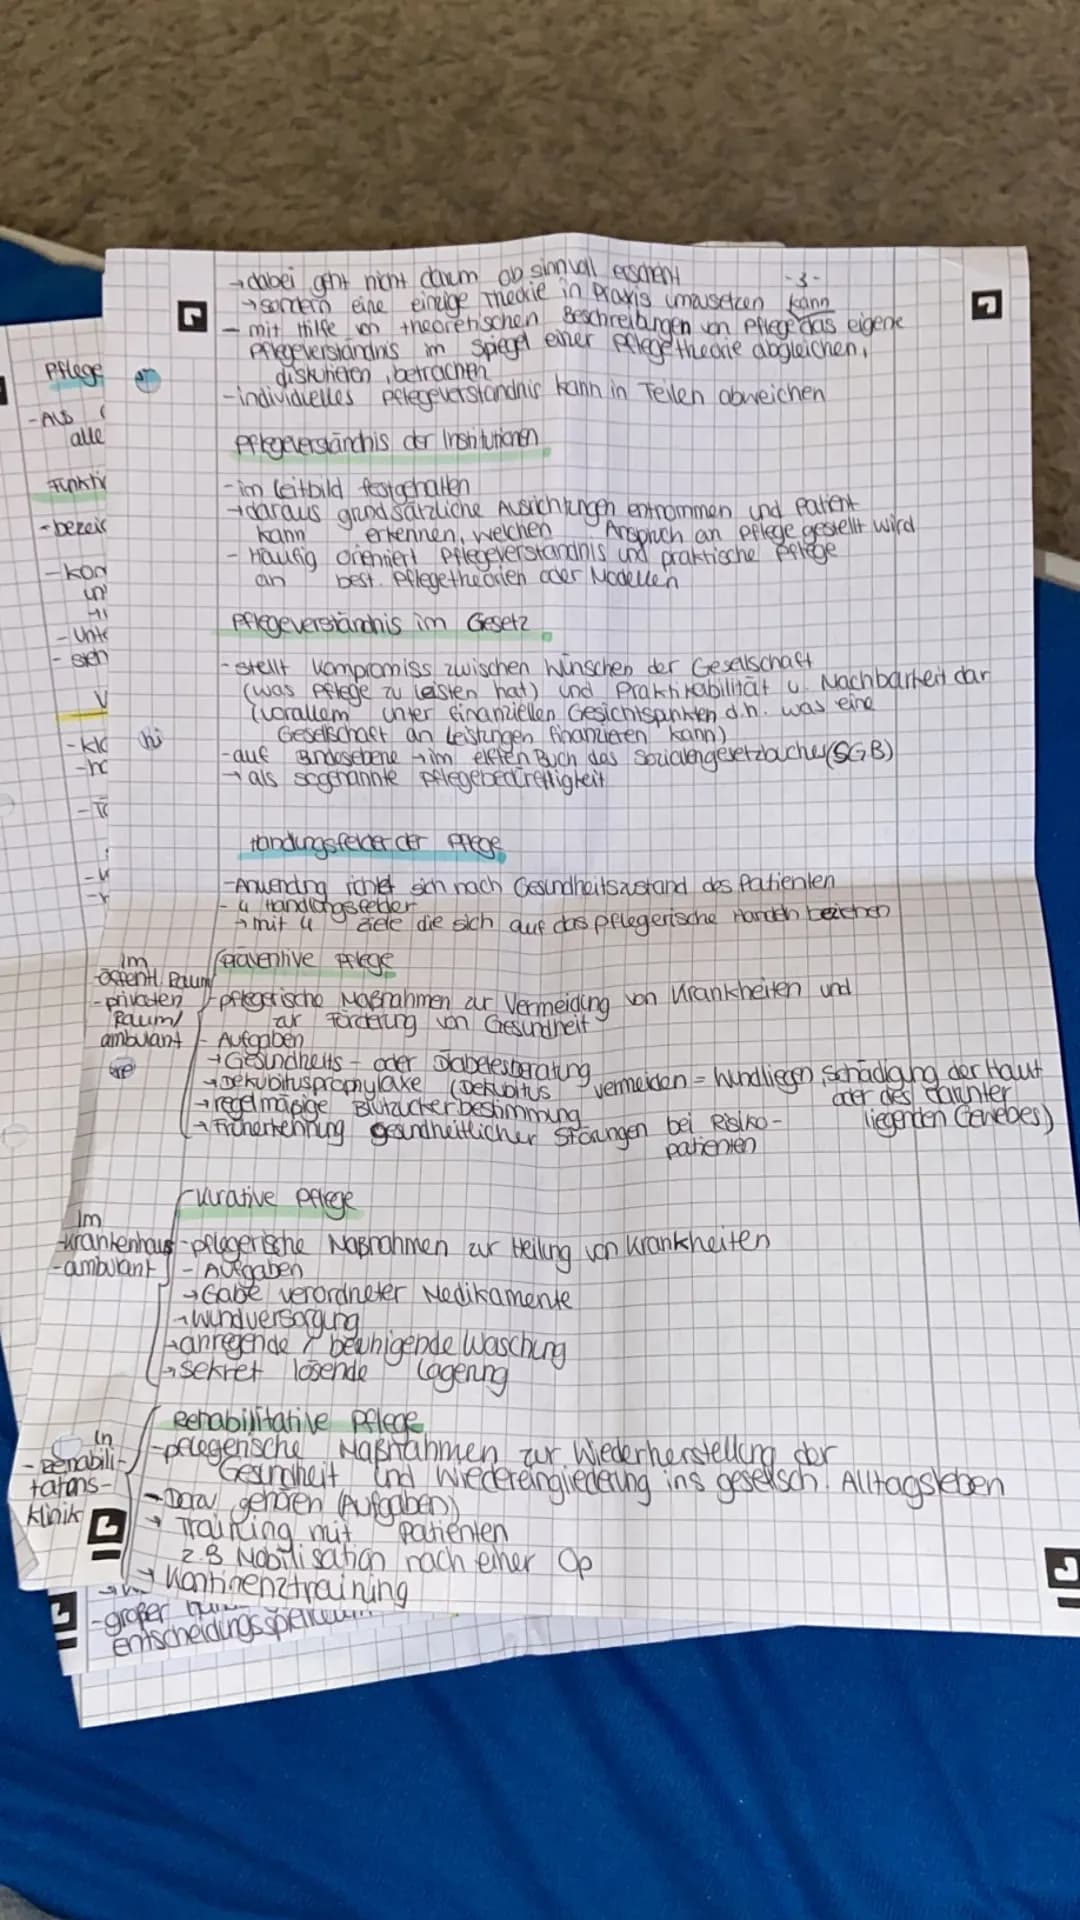 →dabei geht nicht darum ob sinnvoll erscheint
-3-
→sondern eine einzige Theorie in Praxis umzusetzen kann
- mit Hilfe von theoretischen Beschreibungen von Pflege das eigene
Pflegeverständnis im Spiegel einer Pflegetheorie abgleichen,
diskutieren, betrachen
-individuelles Pflegeverständnis kann in Teilen abweichen
Pflegeverständnis der Institutionen
-im Leitbild festgehalten
→daraus grundsätzliche Ausrichtungen entnommen und Patient
kann erkennen, welchen Anspruch an Pflege gestellt wird
- Häufig orientiert Pflegeverständnis und praktische Pflege
an best. Pflegetheorien oder Modellen
Pflegeverständnis im Gesetz
-stellt Kompromiss zwischen Wünschen der Gesellschaft
(was Pflege zu leisten hat) und Praktikabilität u. Machbarkeit dar
(vorallem unter finanziellen Gesichtspunkten d.h. was eine
Gesellschaft an Leistungen finanzieren kann)
-auf Bundesebene →im elften Buch das Sozialengesetzbuches(SGB)
→als sogenannte Pflegebedürftigkeit
Handlungsfelder der Pflege
-Anwendng richtet sich nach Gesundheitszustand des Patienten
- 4 Handlungsfelder
→mit 4 Ziele die sich auf das pflegerische Handeln beziehen
Präventive Pflege
im
öffentl. Raum
-privaten
Raum/
ambulant
-pflegerische Maßnahmen zur Vermeidung von Krankheiten und
zur Förderung von Gesundheit
- Aufgaben
→Gesundheits- oder Diabetesberatung
→Dekubitusprophylaxe (Dekubitus vermeiden = Wundliegen, Schädigung der Haut
oder des darunter
liegenden Gewebes)
→regelmäßige Blutzuckerbestimmung
→Früherkennung gesundheitlicher Störungen bei Risiko-
patienten
Kurative Pflege
im
-Krankenhaus
-ambulant
-pflegerische Maßnahmen zur Heilung von Krankheiten
- Aufgaben
→Gabe verordneter Medikamente
→Wundversorgung
→anregende / beruhigende Waschung
→Sekret lösende Lagerung
Rehabilitative Pflege
in
- Rehabili-
tations-
klinik
-pflegerische Maßnahmen zur Wiederherstellung der
Gesundheit und Wiedereingliederung ins gesellsch. Alltagsleben
-Dazu gehören (Aufgaben)
→ Training mit Patienten
z.B Mobilisation nach einer Op
→ Kontinenztraining
-großer
entscheidungsspielraum
Pflege
-Als
alle
Funkti
-bezeic
-kon
- Unte
- sich